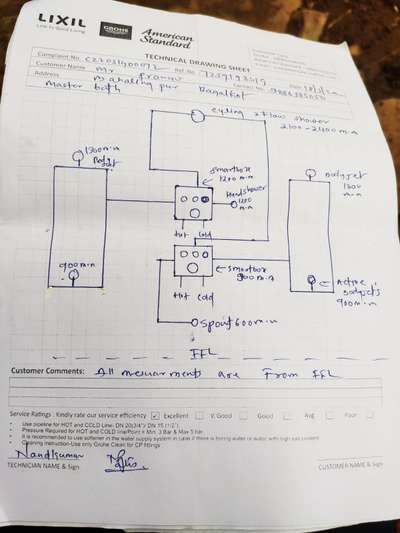 LIXIL
GROHE
American
Standard
TECHNICAL DRAWING SHEET
Complaint No.
Customer Name Mr
Ref. No.
Address
Master bath
2 flow shower
2100-2400 m.m
1200 m.m
smartbox
1200 m.m
Hand shower
1200
m.m
Bodyjet
1200
m.m
Hot Cold
900 m.m
smartbox
900 m.m
Hot Cold
Active
Bodyjets
900 m.m
Spout 600 m.m
FFL
Customer Comments: All mesurments are From FFL
Service Ratings : Kindly rate our service efficiency Excellent V. Good Good Avg Poor
Use pipeline for HOT and COLD Line- DN 20(3/4") DN 15 (1/2")
Pressure Required for HOT and COLD line/Point is Min. 3 Bar & Max 5 bar
It is recommended to use softener in the water supply system in case if there is boring water or water with high salt content
Cleaning instruction-Use only Grohe Clean for CP fittings
Nandkumar
TECHNICIAN NAME & Sign
CUSTOMER NAME & Sign